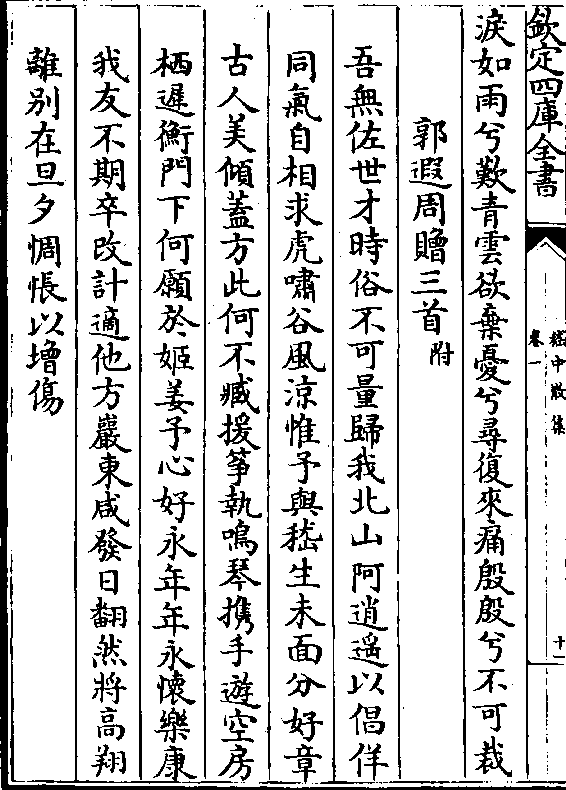 欽定四庫全書
嵇中散集
卷一
十一
淚如雨兮歎青雲欲棄憂兮尋復來痛殷殷兮不可裁
郭遐周贈三首附
吾無佐世才時俗不可量歸我北山阿逍遥以倡佯
同氣自相求虎嘯谷風涼惟予與嵇生未面分好章
古人美傾蓋方此何不臧援筝執鳴琴携手遊空房
栖遲衡門下何願於姬姜予心好永年年永懷樂康
我友不期卒改計適他方嚴東咸發日翻然將高翔
離别在旦夕惆悵以增傷